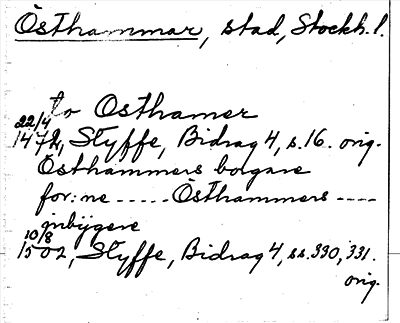 Östhammar, stad, Stockh. l.
to Osthamer
22/4
1472, Styffe, Bidrag 4, s. 16. orig.
Östhammers borgare
for:ne ----- Östhammers ----
inbijgere
10/8
1502, Styffe, Bidrag 4, ss. 330, 331.
orig.